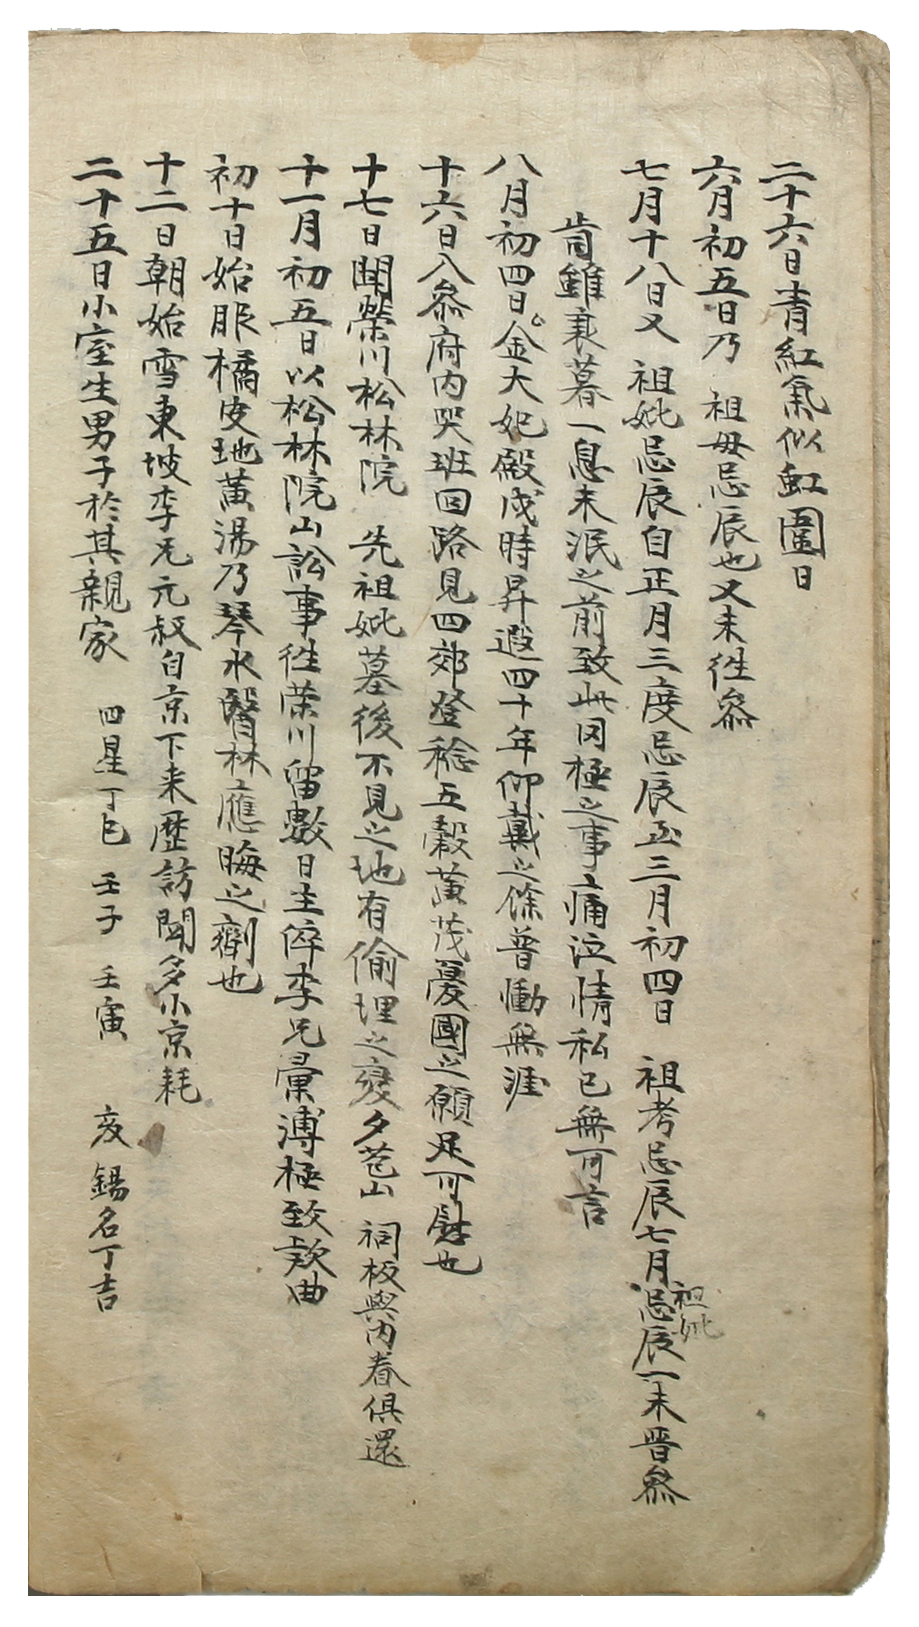 二十六日靑紅氣似虹圍日
六月初五日乃 祖母忌辰也又未徃叅
七月十八日又 祖妣忌辰自正月三度忌辰至三月初四日 祖考忌辰七月祖妣忌辰一未晋叅
尙雖衰暮一息未泯之前致此罔極之事痛泣情私已無可言
八月初四日金大妃殿戌時昇遐四十年仰戴之餘普慟無涯
十六日入叅府內哭班回路見四郊登稔五穀黃茂憂國之願足可慰也
十七日聞榮川松林院 先祖妣墓後不見之地有偷埋之變夕苍山 祠板與內眷俱還
十一月初五日以松林院山訟事徃榮川留數日主倅李兄彙溥極致欵曲
初十日始服橘皮地黃湯乃琴水醫林應晦之劑也
十二日朝始雪東坡李兄元叔自京下来歷訪聞多小京耗
二十五日小室生男子於其親家 四星丁巳 壬子 壬寅 亥 錫名丁吉